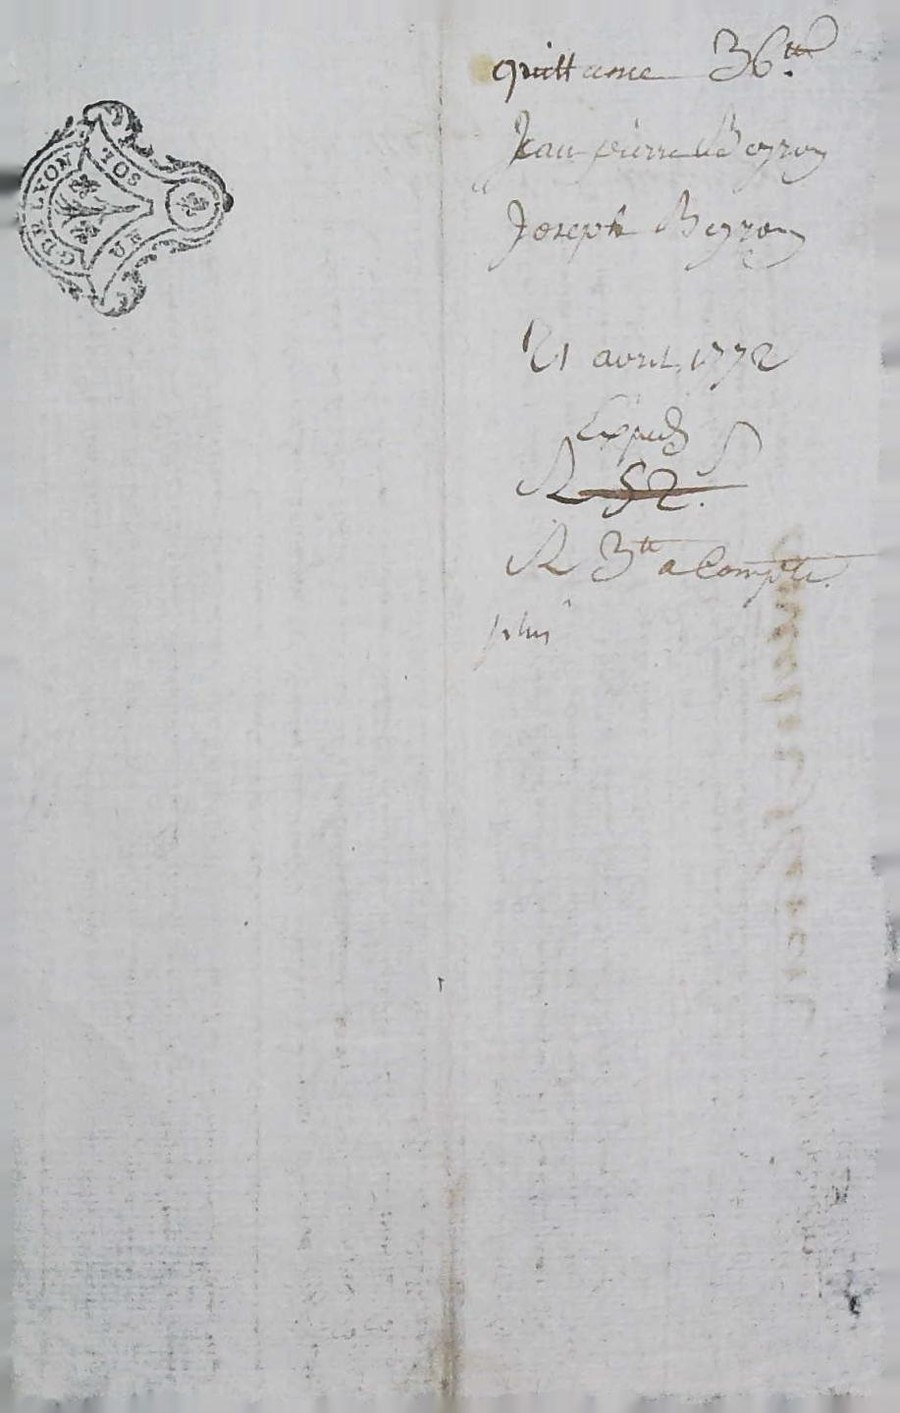 G. DE LYON
TOS
UE
quittance 36 tt
Jean pierre Beyron
a
Joseph Beyron
21 avril 1772
Expedié
R 52.
R 3 tt a Compte.
plus